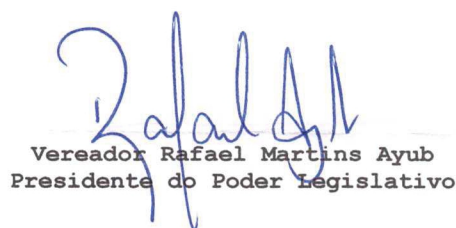 Rafael Ayub
Vereador Rafael Martins Ayub
Presidente do Poder Legislativo